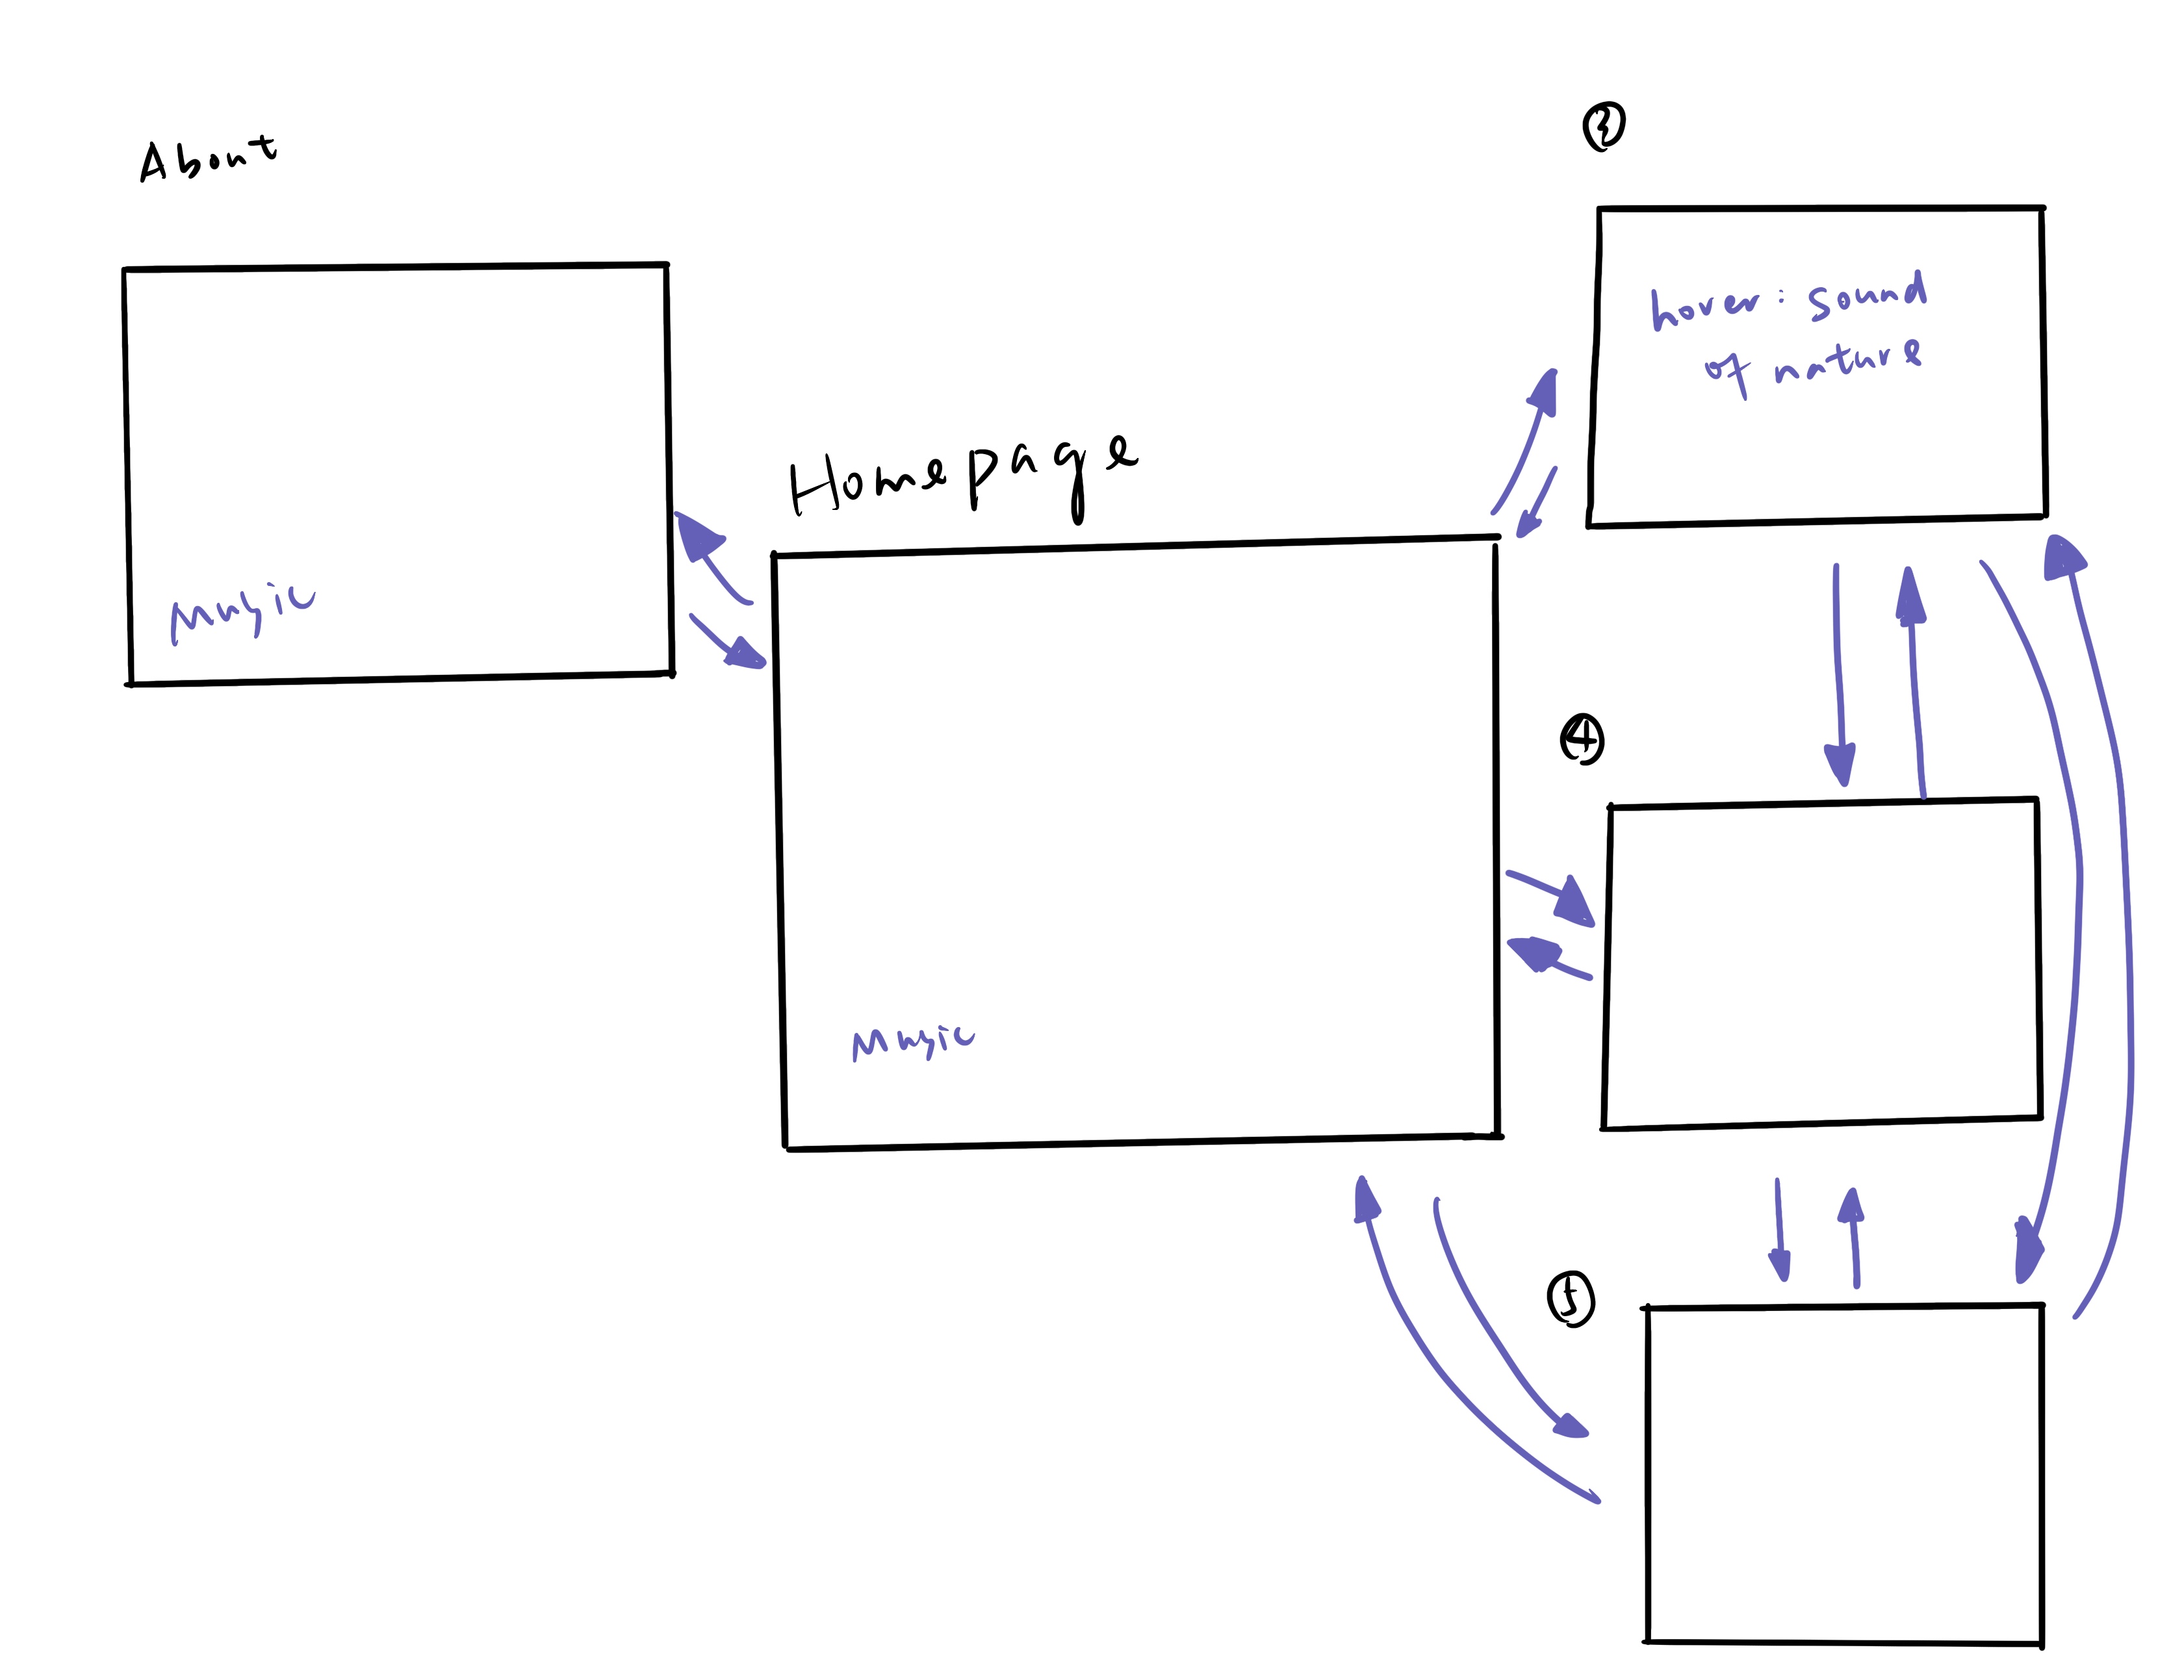 About
Music
Homepage
Music
③
hover: sound
of nature
④
⑤